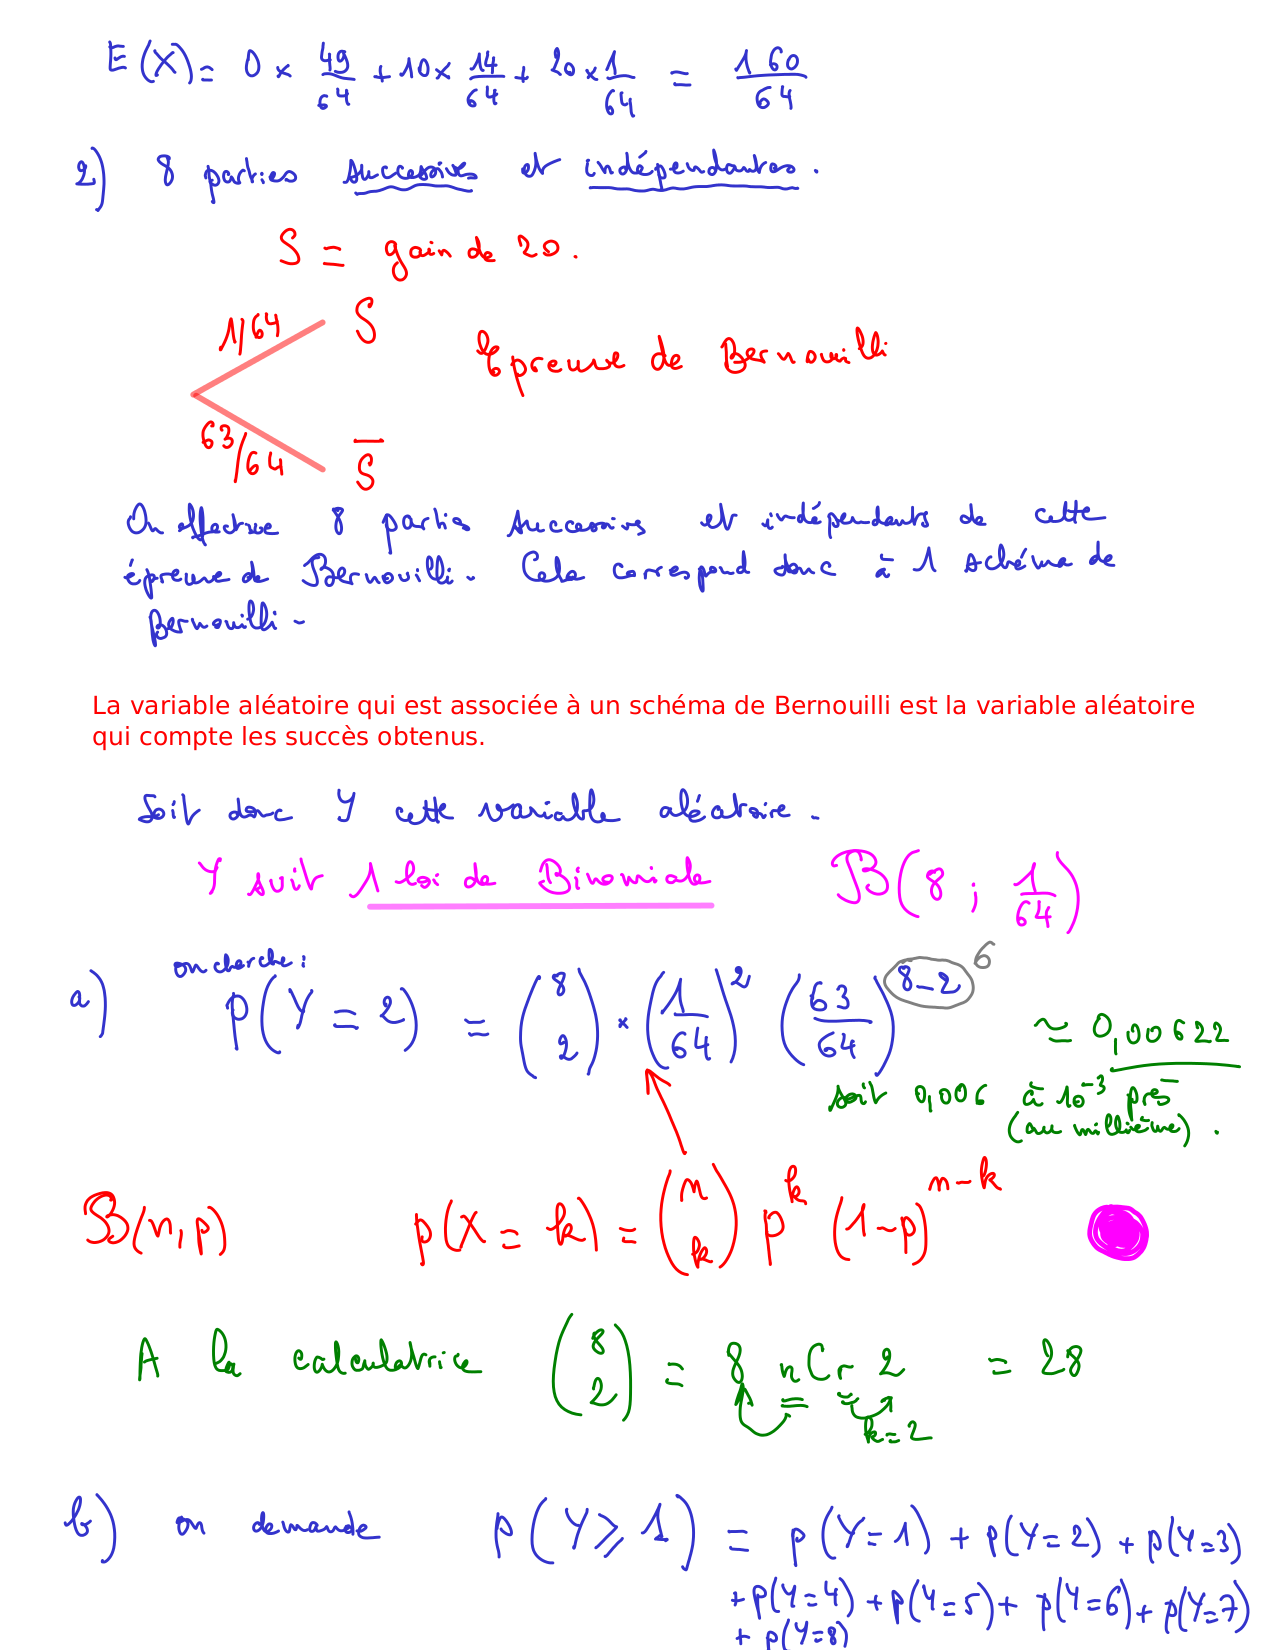 E(X) = 0 × 49/64 + 10 × 14/64 + 20 × 1/64 = 160/64
2) 8 parties successives et indépendantes.
S = gain de 20.
1/64 S
Epreuve de Bernouilli
63/64 S̅
On effectue 8 parties successives et indépendants de cette
épreuve de Bernouilli. Cela correspond donc à 1 schéma de
Bernouilli.
La variable aléatoire qui est associée à un schéma de Bernouilli est la variable aléatoire
qui compte les succès obtenus.
Soit donc Y cette variable aléatoire.
Y suit 1 loi de Binomiale B(8 ; 1/64)
on cherche :
a) p(Y = 2) = (8 2) × (1/64)^2 (63/64)^(8-2) 6
≈ 0,00622
soit 0,006 à 10^-3 près
(au millième).
B(n,p) p(X = k) = (n k) p^k (1-p)^(n-k)
A la calculatrice (8 2) = 8 nCr 2 = 28
k=2
b) on demande p(Y ⩾ 1) = p(Y=1) + p(Y=2) + p(Y=3)
+ p(Y=4) + p(Y=5) + p(Y=6) + p(Y=7)
+ p(Y=8)